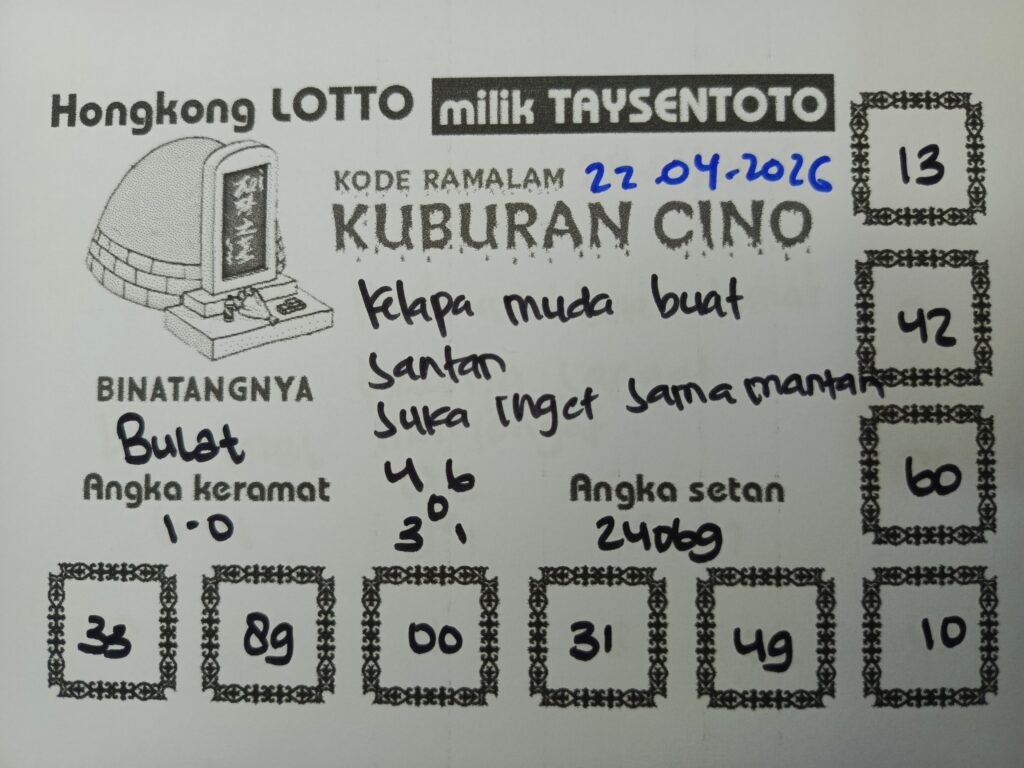 Hongkong LOTTO milik TAYSENTOTO
KODE RAMALAM 22.04-2026
KUBURAN CINO
Kelapa muda buat
santan
suka inget sama mantan
BINATANGNYA
Bulat
Angka keramat
1-0
4 6
0
3 1
Angka setan
24069
13
42
60
33 89 00 31 49 10